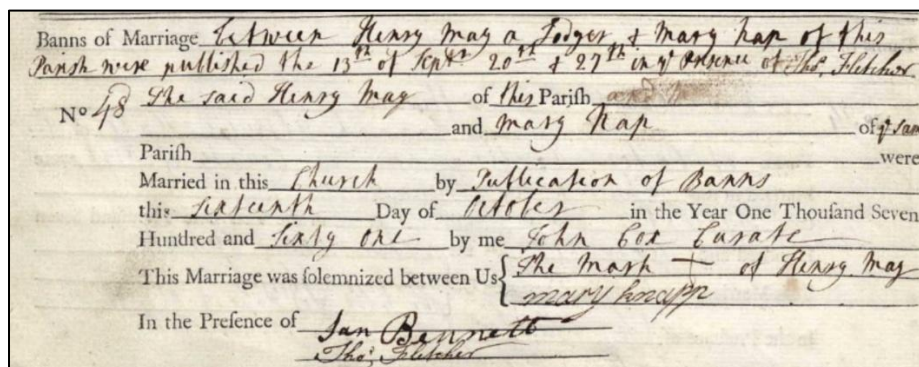 Banns of Marriage between Henry May a Lodger & Mary Nap of this
Parish were published the 13th of Septr 20th & 27th in ye Presence of Thos. Fletcher
No 48 The said Henry May of this Parish
and Mary Nap of ye same
Parish were
Married in this Church by Publication of Banns
this sixteenth Day of October in the Year One Thousand Seven
Hundred and Sixty one by me John Cox Curate
This Marriage was solemnized between Us { The Mark + of Henry May
mary knapp
In the Presence of Jan Bennett
Thos. Fletcher